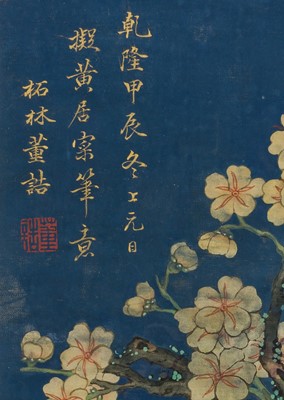 乾隆甲辰冬上元日
擬黄居寀筆意
柘林董誥
董誥